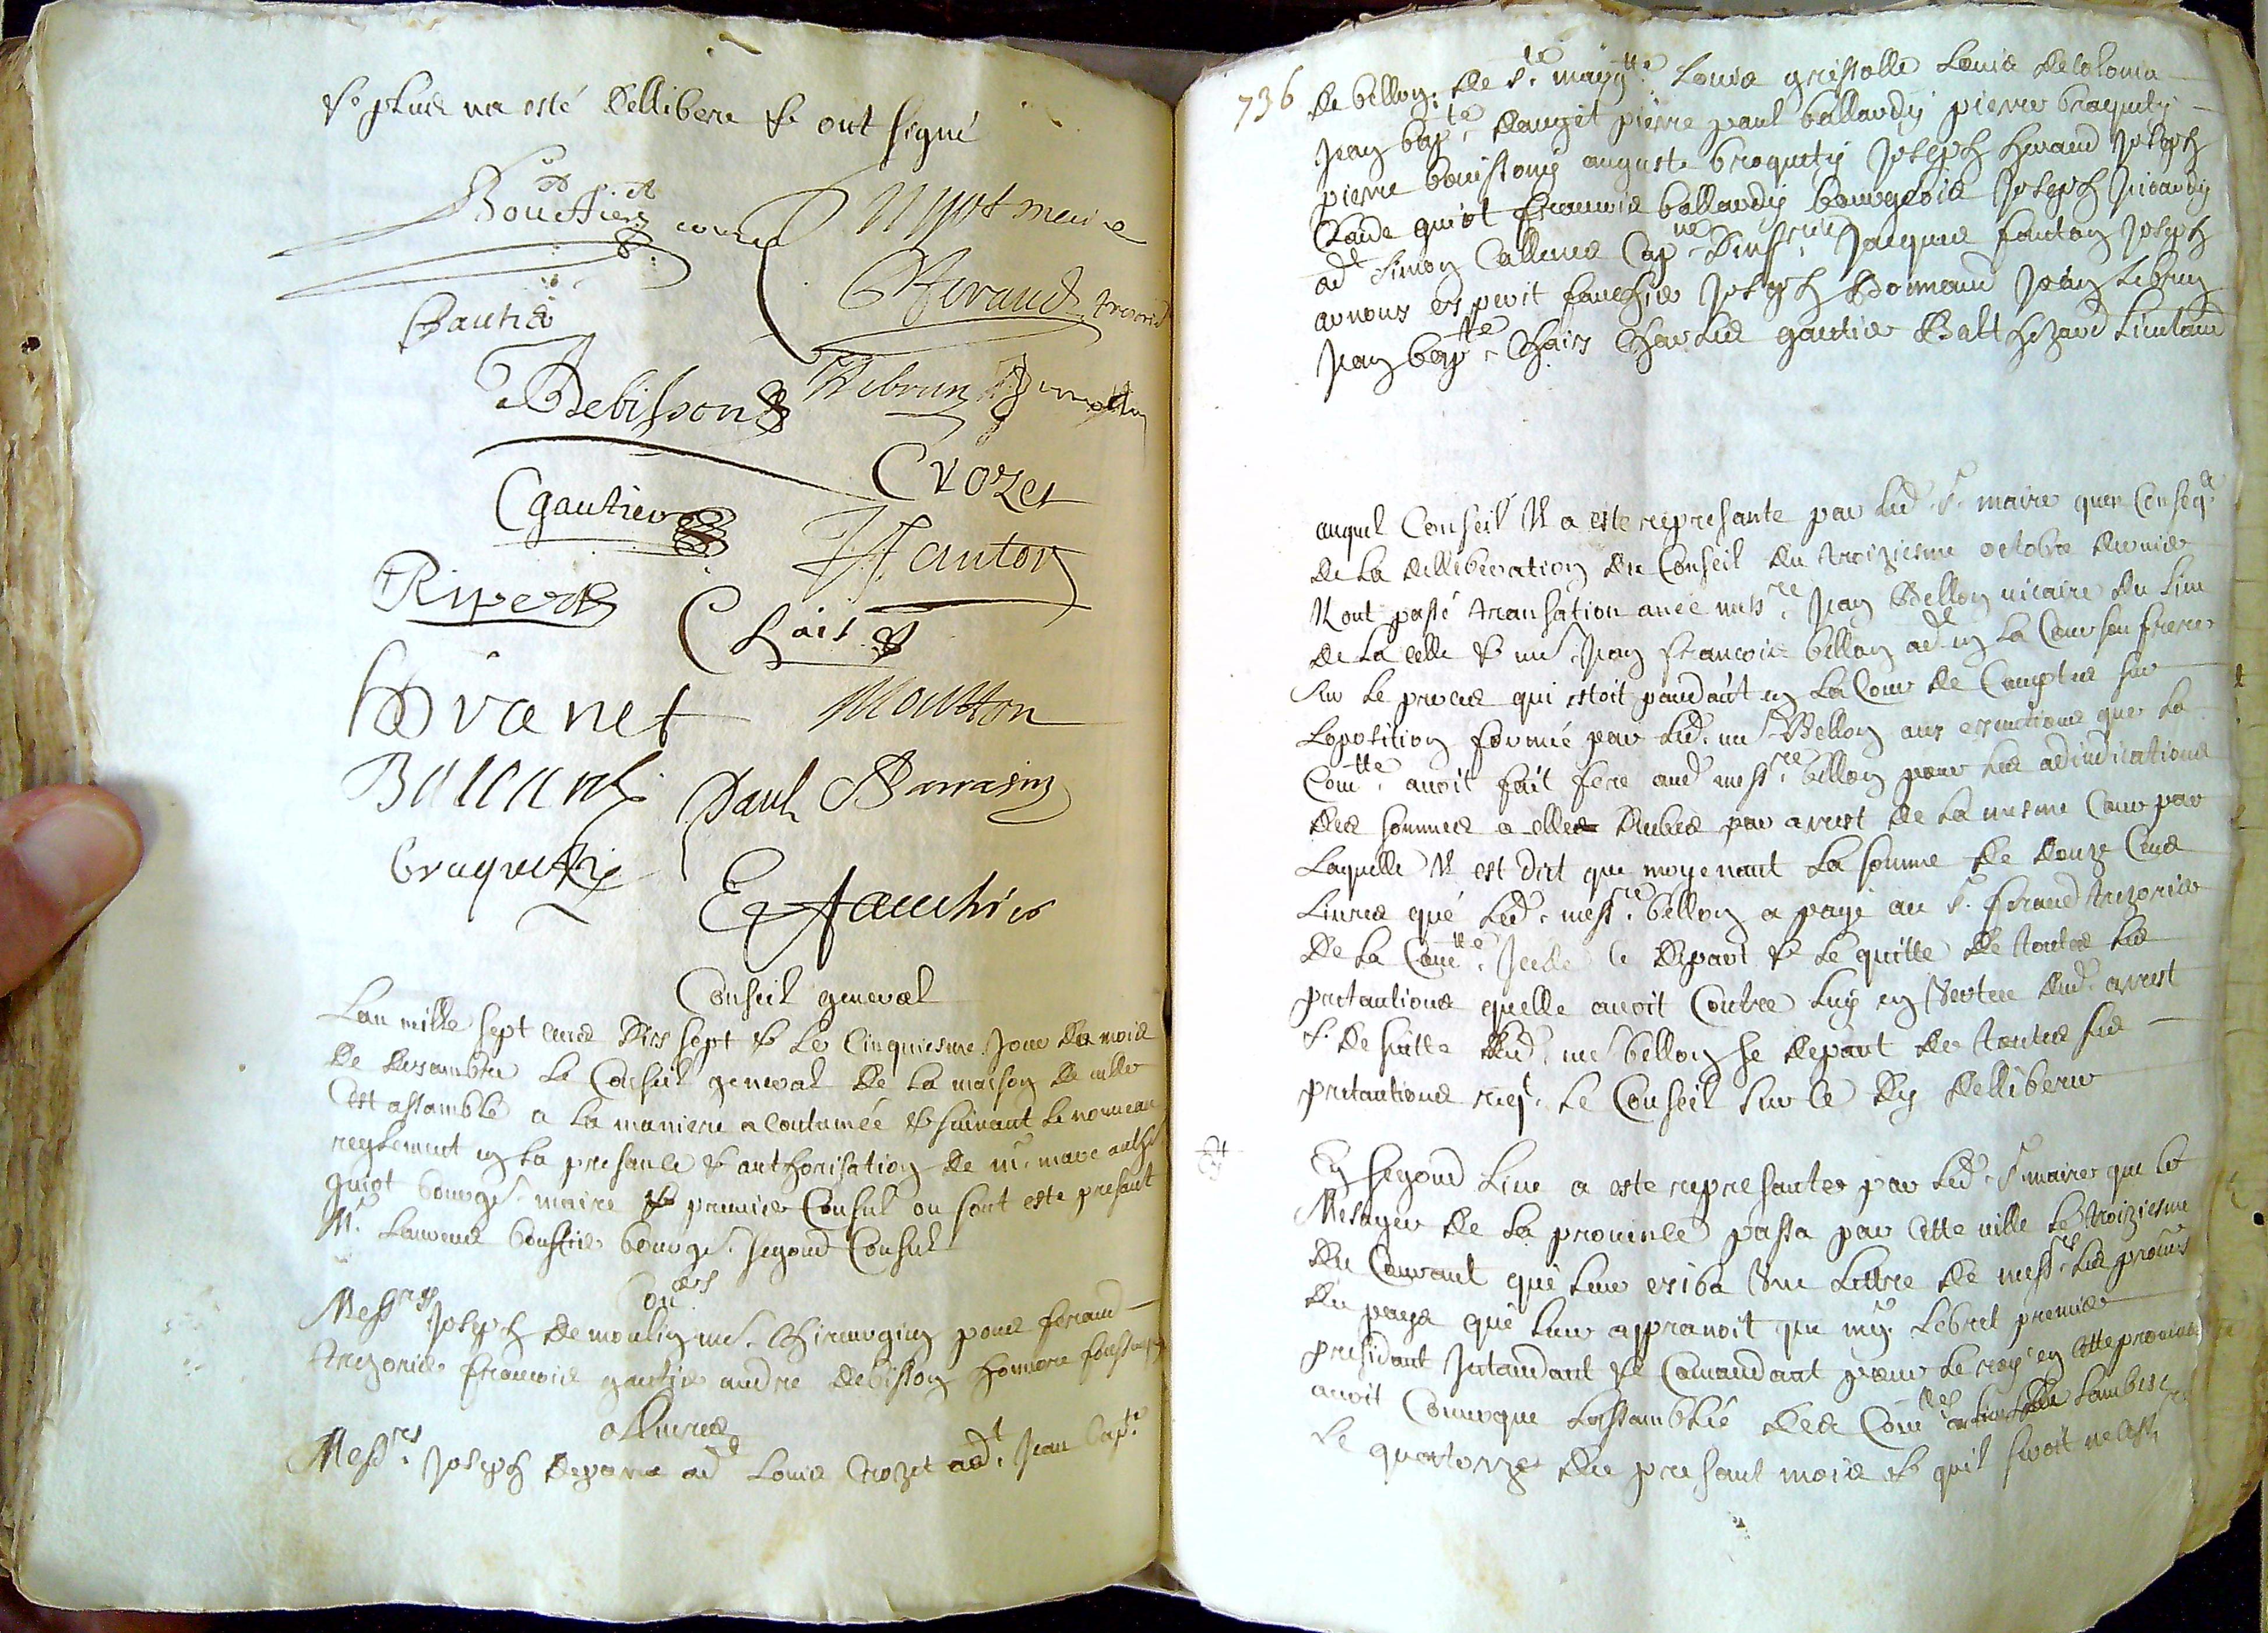 & plus na esté dellibere & ont signé
Bouttier
Gautier
Feraud tresorier
Debisson
Lebrun
Crozet
Cgautier
JFanton
Ripert
Chais
Granet
Moutton
Balardi
Paul
Braquety
E Fauchier
Conseil general
Lan mille sept cens dix sept & le cinquiesme jour du mois
de desambre le Conseil general de la maison de ville
cest assamblé a la maniere acoutumée & suivant le nouveau
reglement en la presance & authorisation de mr marc anthe
guiot bourgs maire & premier Consul ou sont este presant
Mr Laurens bouttier bourgs segond Consul
Coners
Messres Joseph demoulin me chirurgien pons feraud
trezorier francois gautier andre debisson honnore
a Livres
Messrs Joseph ad Louis Crozet adt Jean bapte
736 de bellon de ste margtte Louis grissolle Louis de colonia
Jean bapte dauget pierre paul ballardy pierre braquety
pierre bouissony auguste braquety Joseph heraud Joseph
Claude guiot francois ballardy bourgeois Joseph ricardy
adt Simon Callemes Cap ne dinfrie Jacques fanton Joseph
arnoux esperit fauchier Joseph Jean Lebrun
Jean bapte Chais Charles gautier Balthezard
auquel Conseil Il a este represante par led sr maire quen conseqe
de la dellibération du Conseil du troiziesme octobre dernier
Il ont passé transation avec messre Jean Bellon vicaire du lieu
de la celle & me Jean francois bellon adt en la Cour son frere
sur le proces qui estoit pandant en la Cour de Comptes sur
loposition formée par led me Bellon aux exsecutions que la
Comtte avoit fait fere aud messre bellon pour les adiudications
des sommes a elle deubes par arrest de la mesme Cour par
laquelle Il est dit que moyenant la somme de douze Cens
Livres qué led messre bellon a payé au sr feraud trezorier
de la Comtte Icelle se depart & le quitte de toutes les
pretantions quelle avoit Contre luy en vertu dud arrest
& de suitte led me bellon se depart de toutes ses
pretantions reqt le Conseil sur ce dy dellibere
En segond lieu a este represanté par led sr maire que le
Mesager de la province passa par cette ville le troiziesme
du Courant que leur exiba une Lettre de messrs les procurs
du pays que leur appranoit que mgr Lebret premier
presidant Intandant & Comandant pour le roy en cette province
avoit Convoque Lassamblée des Comtes Lambesc
Le quatorze du presant mois & quil seroit necessre